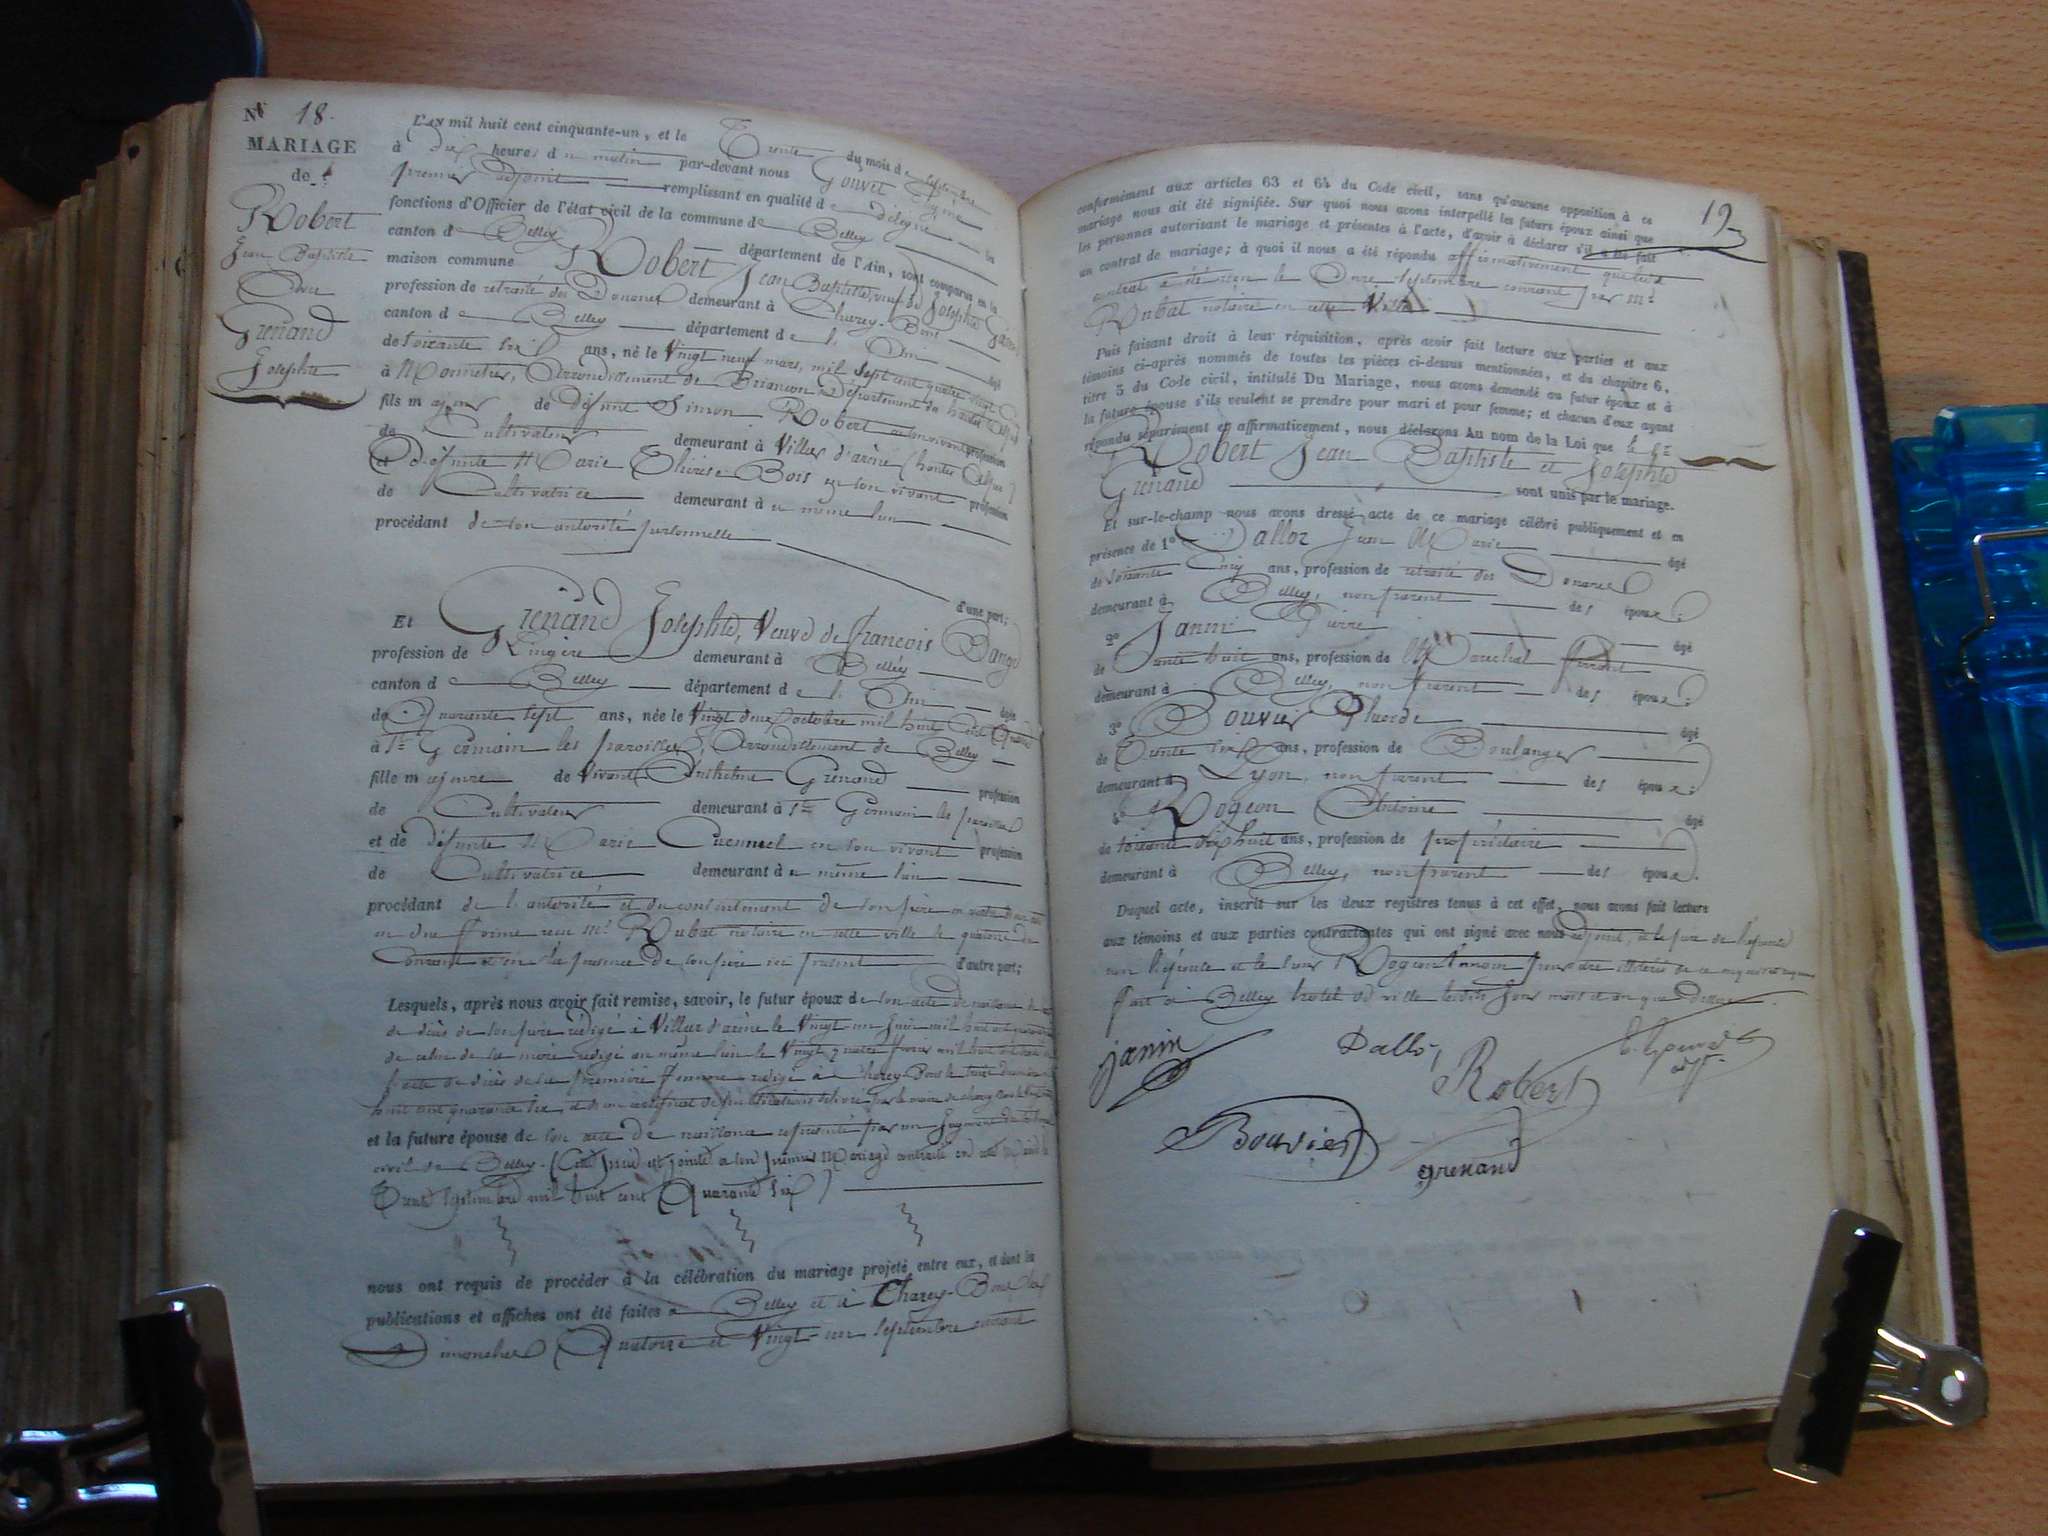 N° 18.
MARIAGE
de
Robert
Jean Baptiste
Avec
Grenand
Josephte
L'AN mil huit cent cinquante-un, et le Trente du mois de septembre
à Dix heures du matin par-devant nous Gouvet
premier adjoint remplissant en qualité de délégué les
fonctions d'Officier de l'état civil de la commune de Belley
canton de Belley département de l'Ain, sont comparus en la
maison commune Robert Jean Baptiste, veuf de Josephte
profession de retraité des Douanes demeurant à Charey-Bons
canton de Belley département de l'Ain âgé
de soixante six ans, né le Vingt neuf mars, mil sept cent quatre vingt
à Monnetier, Arrondissement de Briançon Département des hautes Alpes
fils majeur de défunt Simon Robert en son vivant profession
de Cultivateur demeurant à Villar d'arêne (hautes Alpes)
et défunte Marie Thérèse Bois en son vivant profession
de Cultivatrice demeurant à ce même lieu
procédant de son autorité personnelle
d'une part;
Et Grenand Josephte, Veuve de françois Dangd
profession de Lingère demeurant à Belley
canton de Belley département de l'Ain âgée
de Quarente sept ans, née le Vingt deux octobre mil huit Cent Quatre
à St Germain les paroisses, Arrondissement de Belley
fille majeure de vivant Anthelme Grenand profession
de Cultivateur demeurant à St Germain les paroisses
et de défunte Marie Cuennel en son vivant profession
de Cultivatrice demeurant à ce même lieu
procédant de l'autorité et du consentement de son père
en due forme reçu Me Rubat notaire en cette ville le quatorze du
Courant et en la présence de son père ici présent d'autre part;
Lesquels, après nous avoir fait remise, savoir, le futur époux de son acte de naissance
de décès de son père rédigé à Villar d'arêne le Vingt-un Juin mil huit cent
de celui de sa mère rédigé au même lieu le Vingt quatre février mil huit cent
l'acte de décès de sa première femme rédigé à Charey-Bons le treize
huit cent quarante six, et d'un certificat de publications délivré par le maire de Charey-Bons
et la future épouse de son acte de naissance représenté par un Jugement du tribunal
civil de Belley. (Cette pièce est jointe à son premier Mariage contracté en cette
Trente Septembre mil huit cent Quarante Six)
nous ont requis de procéder à la célébration du mariage projeté entre eux, et dont les
publications et affiches ont été faites à Belley et à Charey-Bons les
Dimanches Quatorze et Vingt-un septembre courant
19
conformément aux articles 63 et 64 du Code civil, sans qu'aucune opposition à ce
mariage nous ait été signifiée. Sur quoi nous avons interpellé les futurs époux ainsi que
les personnes autorisant le mariage et présentes à l'acte, d'avoir à déclarer s'il a été fait
un contrat de mariage; à quoi il nous a été répondu affirmativement que leur
contrat a été reçu le Onze septembre courant par Me
Rubat notaire en cette Ville
Puis faisant droit à leur réquisition, après avoir fait lecture aux parties et aux
témoins ci-après nommés de toutes les pièces ci-dessus mentionnées, et du chapitre 6,
titre 5 du Code civil, intitulé Du Mariage, nous avons demandé au futur époux et à
la future épouse s'ils veulent se prendre pour mari et pour femme; et chacun d'eux ayant
répondu séparément en affirmativement, nous déclarons Au nom de la Loi que le Sr
Robert Jean Baptiste et Josephte
Grenand sont unis par le mariage.
Et sur-le-champ nous avons dressé acte de ce mariage célébré publiquement et en
présence de 1° Balloz Jean Marie âgé
de soixante Cinq ans, profession de retraité des Douanes
demeurant à Belley, non parent des époux;
2° Janin Pierre âgé
de Trente huit ans, profession de Maréchal ferrant
demeurant à Belley, non parent des époux;
3° Bouvier Pluerde âgé
de Trente six ans, profession de Boulanger
demeurant à Lyon, non parent des époux;
4° Rogeon Antoine âgé
de soixante dix huit ans, profession de propriétaire
demeurant à Belley, non parent des époux.
Duquel acte, inscrit sur les deux registres tenus à cet effet, nous avons fait lecture
aux témoins et aux parties contractantes qui ont signé avec nous adjoint, et le père de l'épouse
non l'épouse et le sieur Rogeon témoin pour être illitérés de ce enquis et requis
fait à Belley hotel de ville lesdits Jour mois et an que dessus.
janin
Dallo,
Robert
adjt
Bouvier
grenand